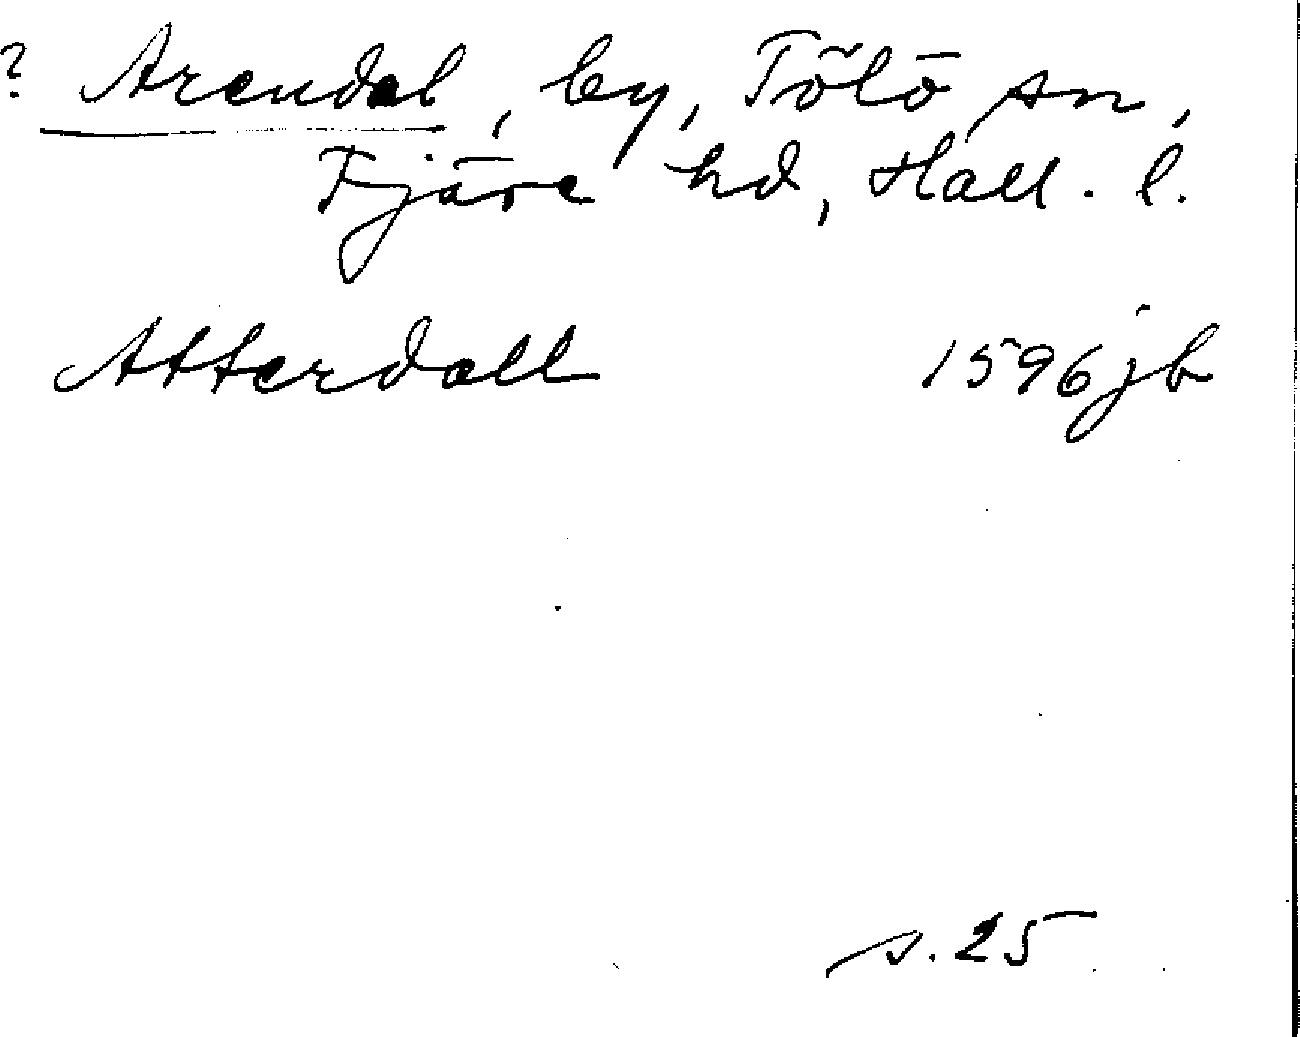 ? Arendal, by, Tölö sn,
Fjäre hd, Hall. l.
Atterdall 1596 jb
s. 25